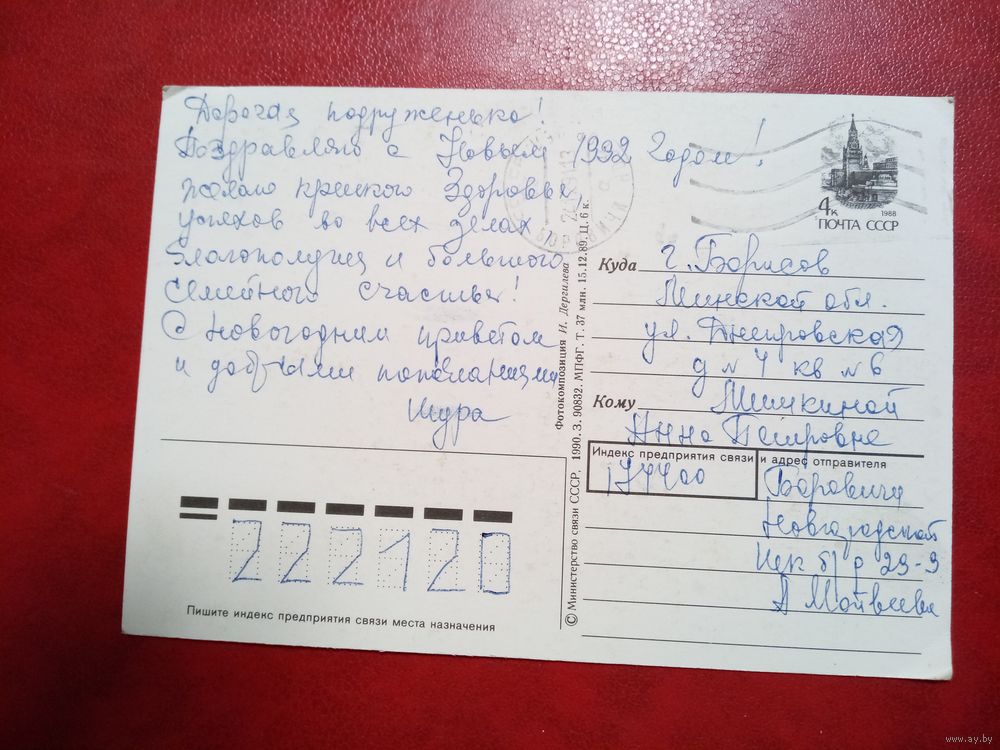 Дорогая подруженька!
Поздравляю с Новым 1992 Годом!
желаю крепкого Здоровья
успехов во всех делах
благополучия и большого
семейного счастья!
С новогодним приветом
и добрыми пожеланиями
Шура
222120
Пишите индекс предприятия связи места назначения
© Министерство связи СССР. 1990. З. 90832. МПФГ. Т. 37 млн. 15.12.89. Ц. 6 к.
Фотокомпозиция И. Дергилева
4к
1988
ПОЧТА СССР
Куда г. Борисов
Минской обл.
ул. Днепровская
д №4 кв №6
Кому
Анне Петровне
Индекс предприятия связи и адрес отправителя
174400
Боровичи
Новгородской
р 23-3
А Матвеева
www.ay.by